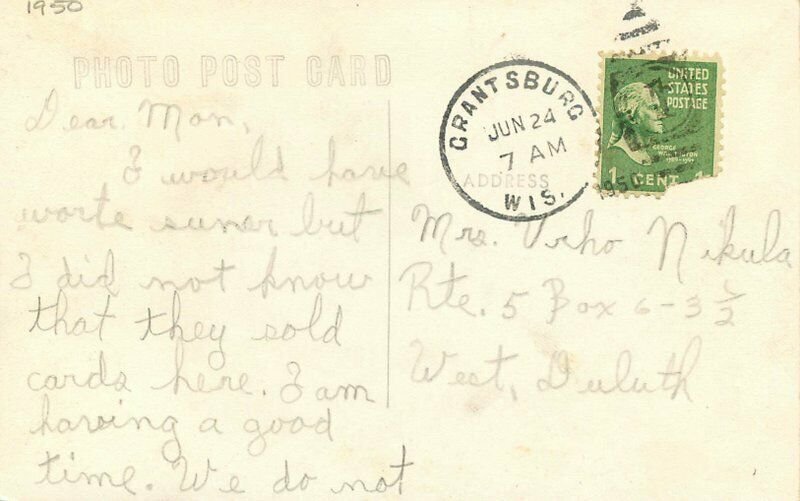 1950
PHOTO POST CARD
Dear Mom,
I would have
worte suner but
I did not know
that they sold
cards here. I am
having a good
time. We do not
GRANTSBURG
JUN 24
7 AM
WIS.
1950
UNITED
STATES
POSTAGE
GEORGE
WASHINGTON
1789-1797
1 CENT 1
ADDRESS
Mrs. Urho Nikula
Rte. 5 Box 6-3 1/2
West, Duluth